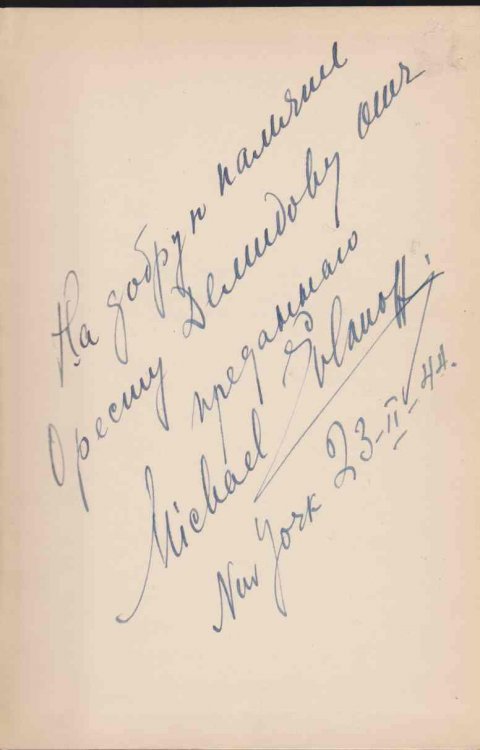 На добрую память
Оресту Демидову отъ
преданнаго
Michael
New York 23-IV-44.